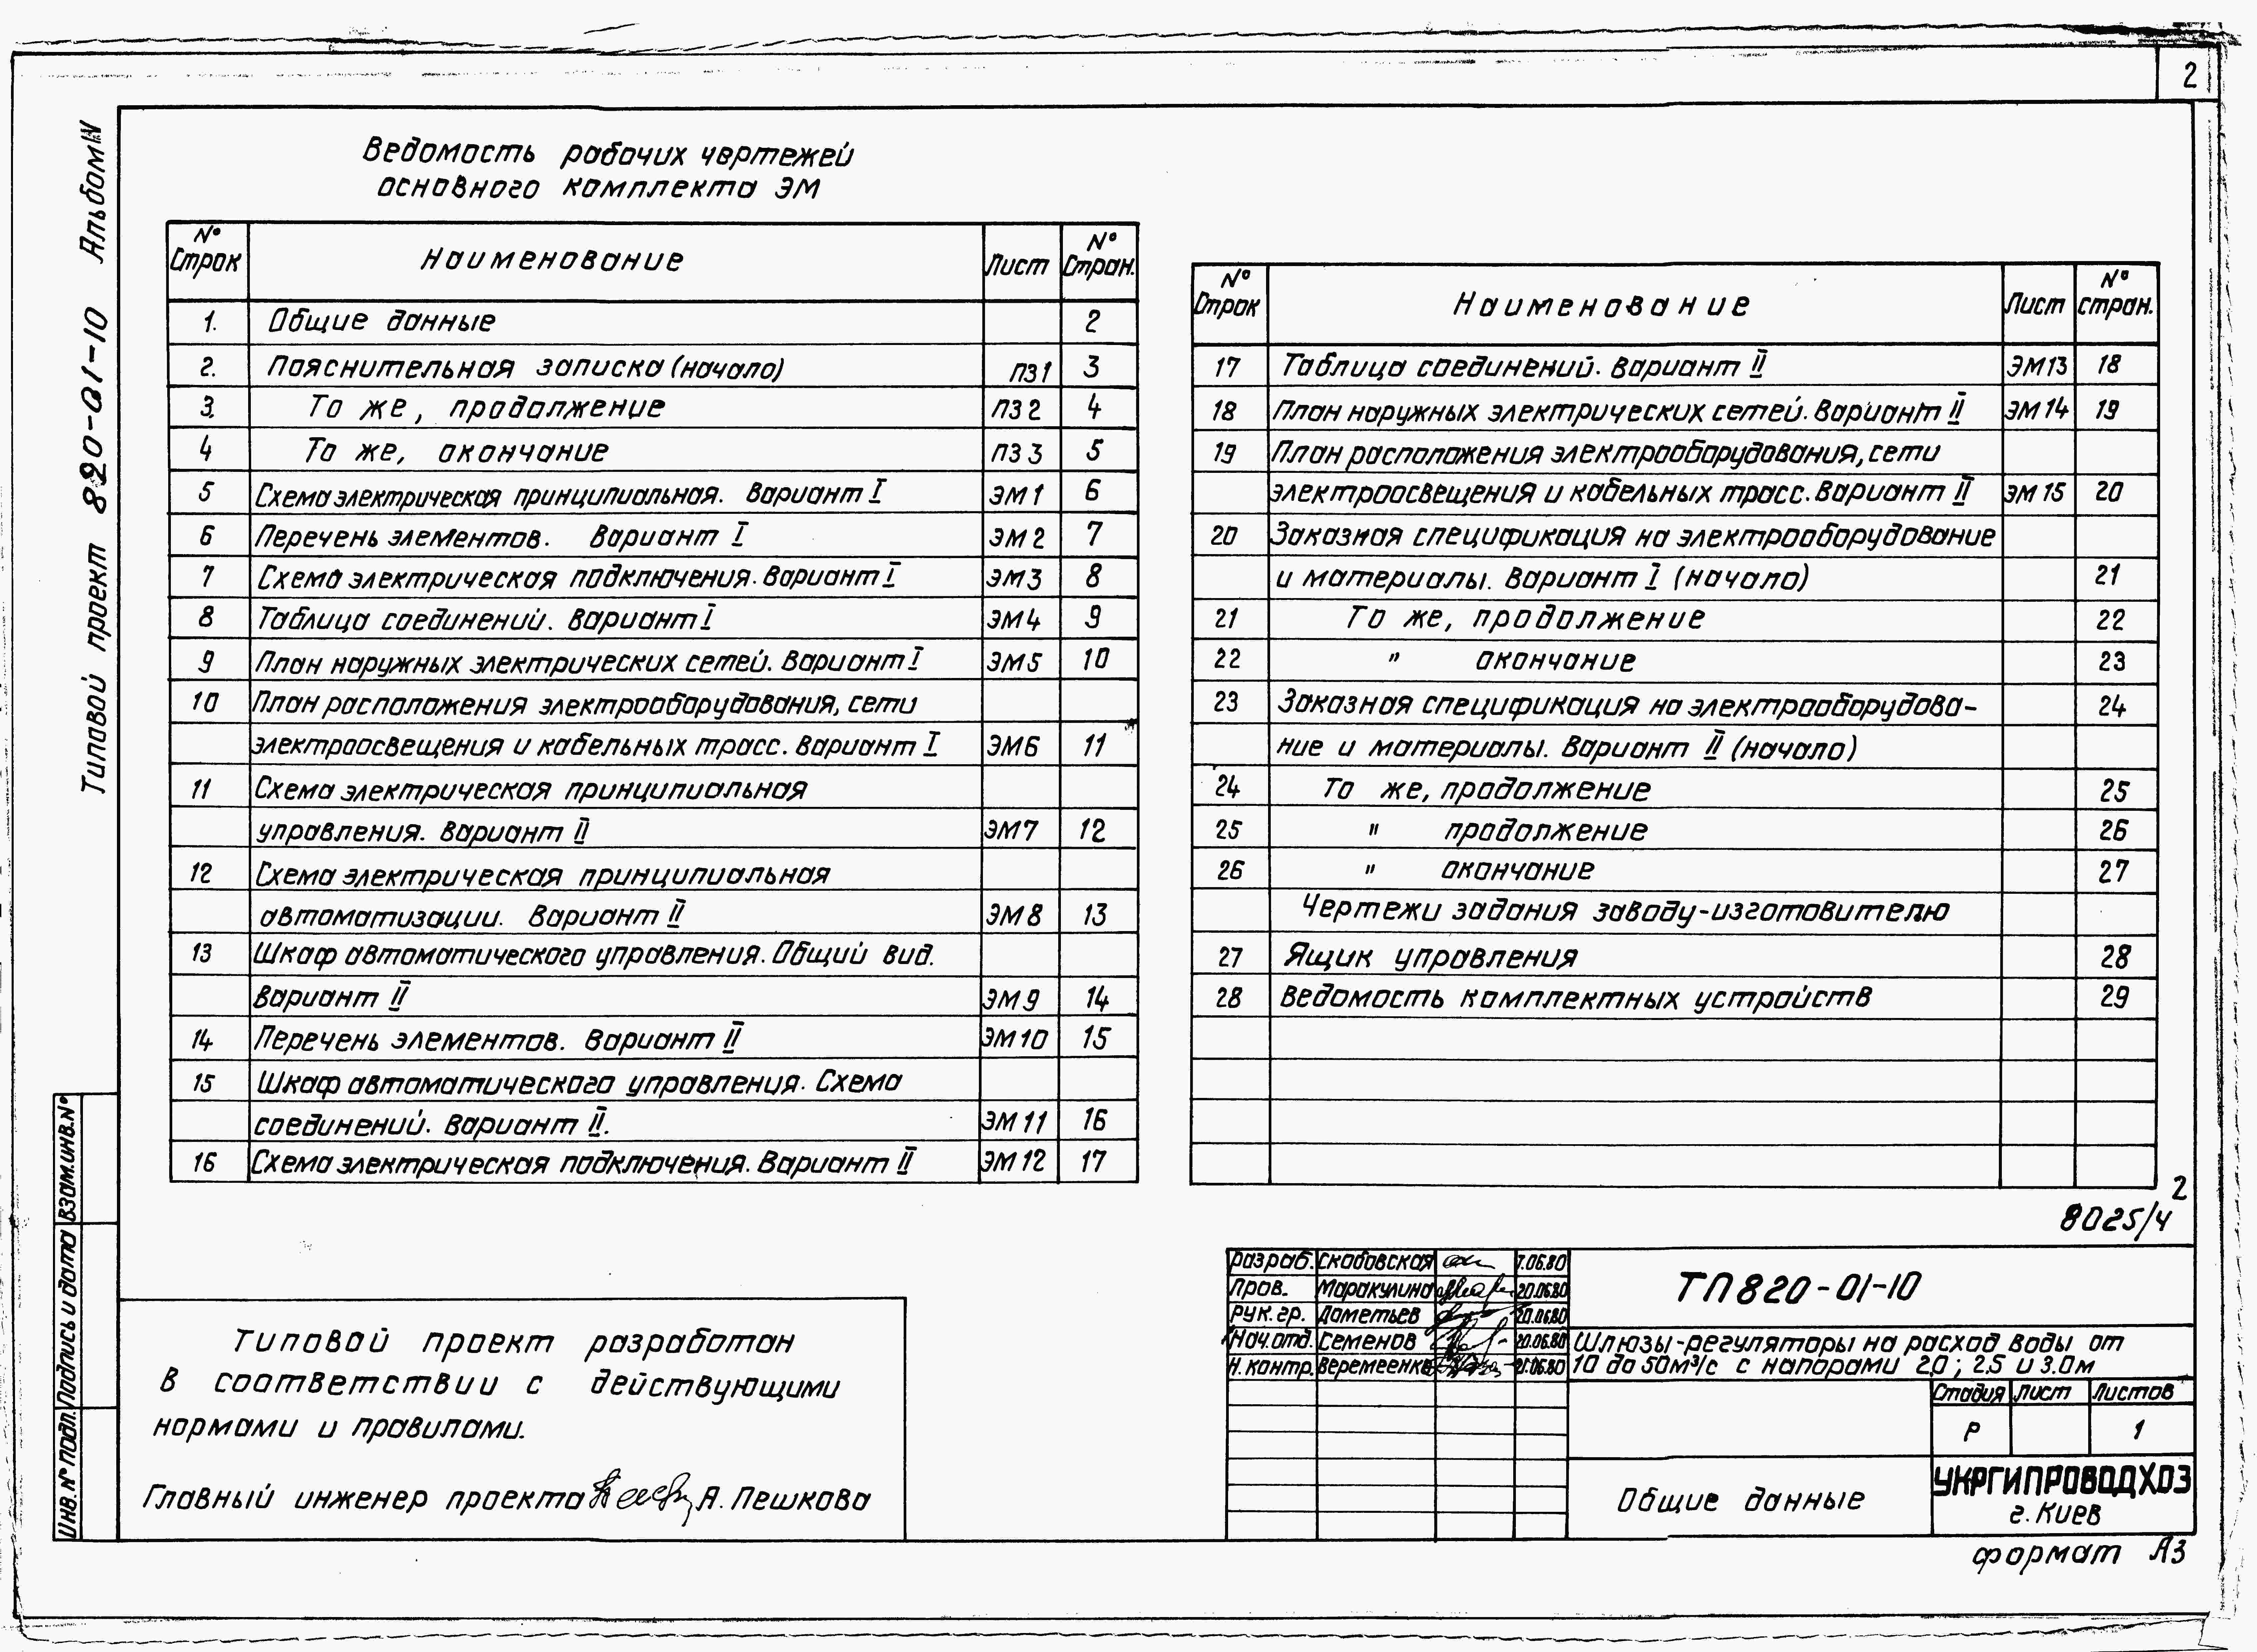 2
Типовой проект 820-01-10 Альбом IV
Ведомость рабочих чертежей
основного комплекта ЭМ
№ Строк Наименование Лист № Стран.
1. Общие данные 2
2. Пояснительная записка (начало) ПЗ 1 3
3. То же, продолжение ПЗ 2 4
4 То же, окончание ПЗ 3 5
5 Схема электрическая принципиальная. Вариант I ЭМ 1 6
6 Перечень элементов. Вариант I ЭМ 2 7
7 Схема электрическая подключения. Вариант I ЭМ 3 8
8 Таблица соединений. Вариант I ЭМ 4 9
9 План наружных электрических сетей. Вариант I ЭМ 5 10
10 План расположения электрооборудования, сети
электроосвещения и кабельных трасс. Вариант I ЭМ 6 11
11 Схема электрическая принципиальная
управления. Вариант II ЭМ 7 12
12 Схема электрическая принципиальная
автоматизации. Вариант II ЭМ 8 13
13 Шкаф автоматического управления. Общий вид.
Вариант II ЭМ 9 14
14 Перечень элементов. Вариант II ЭМ 10 15
15 Шкаф автоматического управления. Схема
соединений. Вариант II. ЭМ 11 16
16 Схема электрическая подключения. Вариант II ЭМ 12 17
№ Строк Наименование Лист № стран.
17 Таблица соединений. Вариант II ЭМ 13 18
18 План наружных электрических сетей. Вариант II ЭМ 14 19
19 План расположения электрооборудования, сети
электроосвещения и кабельных трасс. Вариант II ЭМ 15 20
20 Заказная спецификация на электрооборудование
и материалы. Вариант I (начало) 21
21 То же, продолжение 22
22 " окончание 23
23 Заказная спецификация на электрооборудова- 24
ние и материалы. Вариант II (начало)
24 То же, продолжение 25
25 " продолжение 26
26 " окончание 27
Чертежи задания заводу-изготовителю
27 Ящик управления 28
28 Ведомость комплектных устройств 29
2
8025/4
Типовой проект разработан
в соответствии с действующими
нормами и правилами.
Главный инженер проекта А. Пешкова
Разраб. Скабовская 7.06.80
Пров. Маракулина 20.06.80
Рук. гр. Дометьев 20.06.80
Нач. отд. Семенов 20.06.80
Н. контр. Веремеенко 21.06.80
ТП 820-01-10
Шлюзы-регуляторы на расход воды от
10 до 50 м³/с с напорами 2.0; 2.5 и 3.0м
Стадия Лист Листов
Р 1
Общие данные
УКРГИПРОВОДХОЗ
г. Киев
формат А3
Инв. № подл. Подпись и дата Взам. инв. №